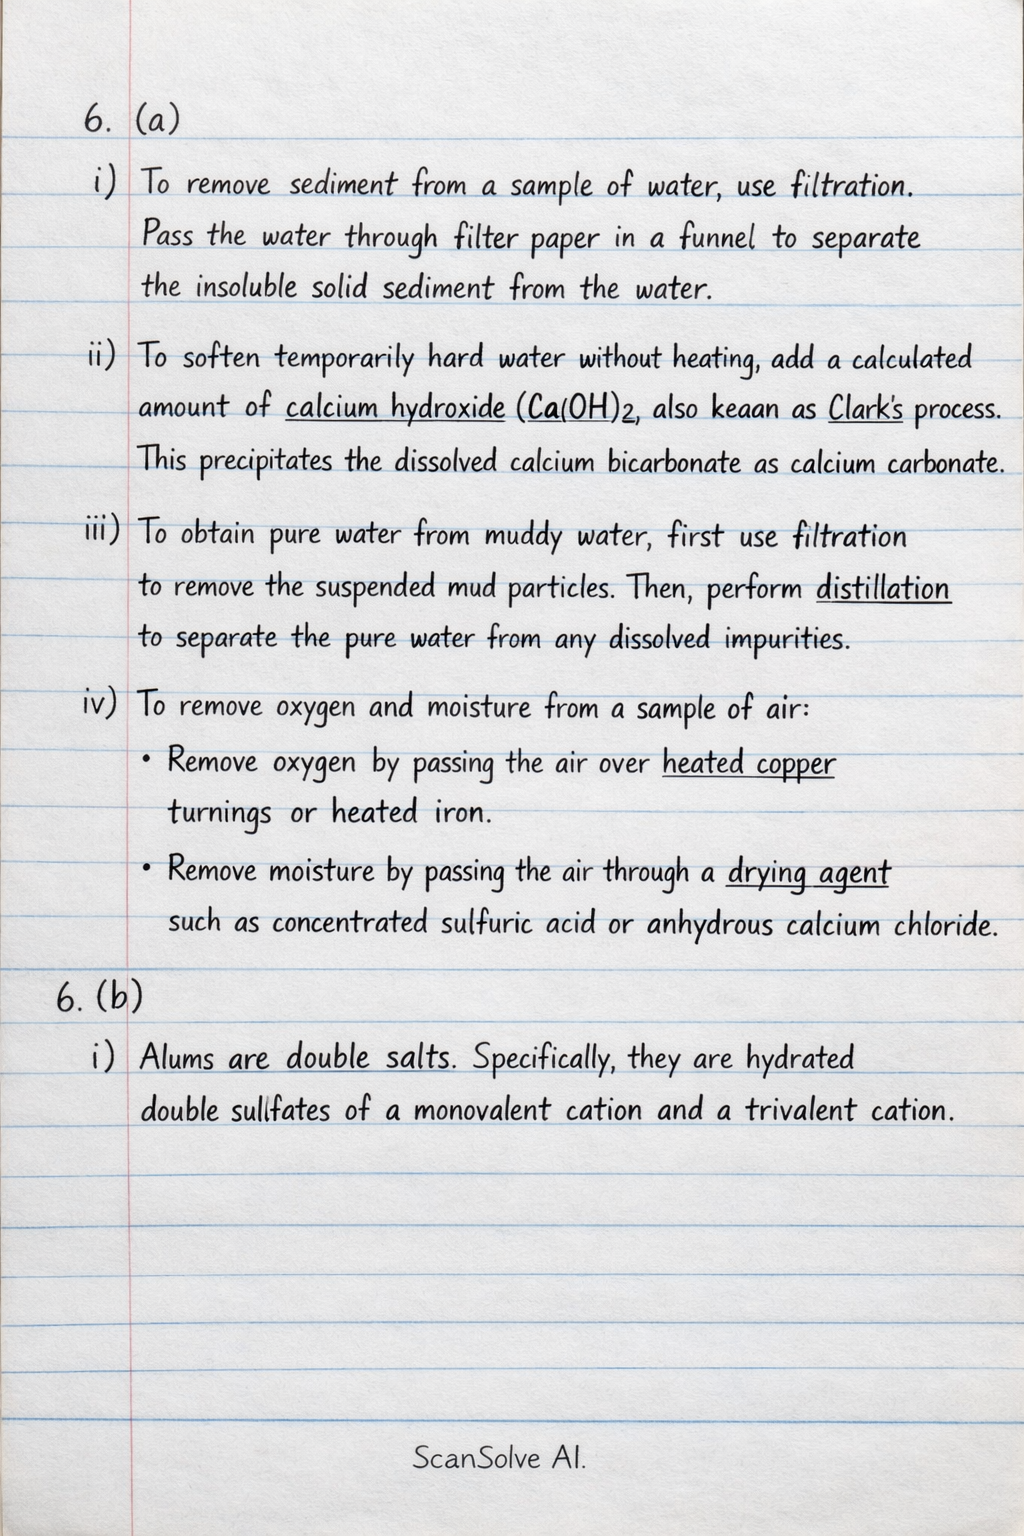 6. (a)
i) To remove sediment from a sample of water, use filtration.
Pass the water through filter paper in a funnel to separate
the insoluble solid sediment from the water.
ii) To soften temporarily hard water without heating, add a calculated
amount of calcium hydroxide (Ca(OH)2, also keaan as Clark's process.
This precipitates the dissolved calcium bicarbonate as calcium carbonate.
iii) To obtain pure water from muddy water, first use filtration
to remove the suspended mud particles. Then, perform distillation
to separate the pure water from any dissolved impurities.
iv) To remove oxygen and moisture from a sample of air:
• Remove oxygen by passing the air over heated copper
turnings or heated iron.
• Remove moisture by passing the air through a drying agent
such as concentrated sulfuric acid or anhydrous calcium chloride.
6. (b)
i) Alums are double salts. Specifically, they are hydrated
double sullfates of a monovalent cation and a trivalent cation.
ScanSolve AI.